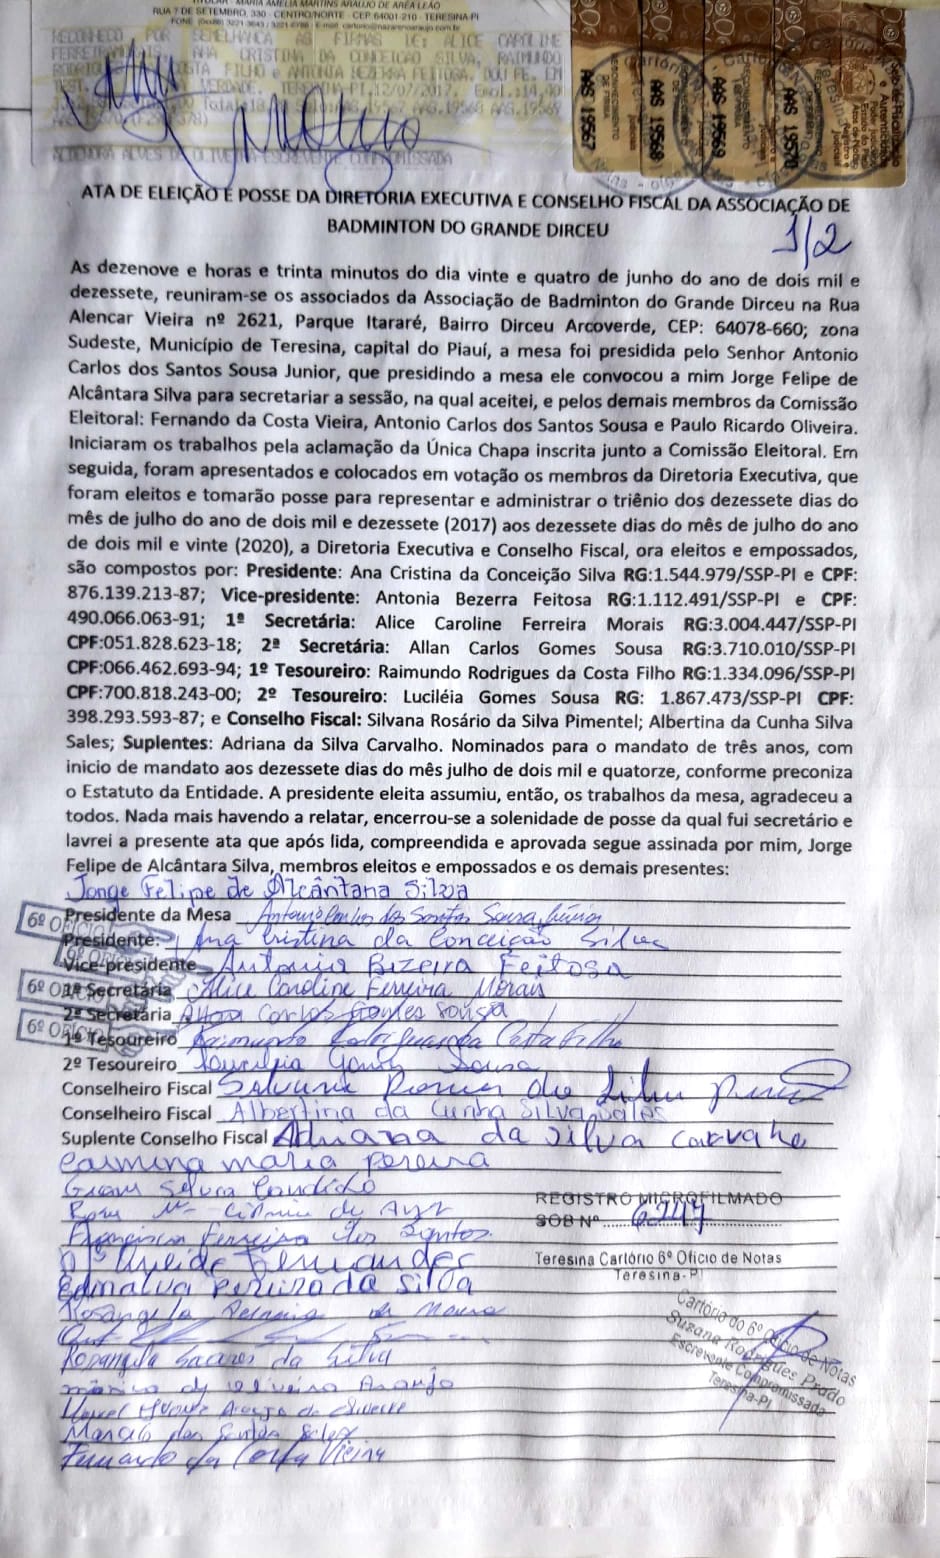 TITULAR - MARIA AMÉLIA MARTINS ARAÚJO DE ARÊA LEÃO
RUA 7 DE SETEMBRO, 330 - CENTRO/NORTE - CEP 64001-210 - TERESINA-PI
RECONHECO POR SEMELHANCA AS FIRMAS DE: ALICE CAROLINE
FERREIRA ANA CRISTINA DA CONCEICAO SILVA, RAIMUNDO
COSTA FILHO e ANTONIA BEZERRA FEITOSA. DOU FE. EM
TEST. VERDADE. TERESINA-PI, 12/07/2017.
AAS.19567 AAS.19568 AAS.19569
ESCREVENTE COMPROMISSADA
AAS 19567
AAS 19568
AAS 19569
AAS 19570
ATA DE ELEIÇÃO E POSSE DA DIRETORIA EXECUTIVA E CONSELHO FISCAL DA ASSOCIAÇÃO DE
BADMINTON DO GRANDE DIRCEU
1/2
As dezenove e horas e trinta minutos do dia vinte e quatro de junho do ano de dois mil e
dezessete, reuniram-se os associados da Associação de Badminton do Grande Dirceu na Rua
Alencar Vieira nº 2621, Parque Itararé, Bairro Dirceu Arcoverde, CEP: 64078-660; zona
Sudeste, Município de Teresina, capital do Piauí, a mesa foi presidida pelo Senhor Antonio
Carlos dos Santos Sousa Junior, que presidindo a mesa ele convocou a mim Jorge Felipe de
Alcântara Silva para secretariar a sessão, na qual aceitei, e pelos demais membros da Comissão
Eleitoral: Fernando da Costa Vieira, Antonio Carlos dos Santos Sousa e Paulo Ricardo Oliveira.
Iniciaram os trabalhos pela aclamação da Única Chapa inscrita junto a Comissão Eleitoral. Em
seguida, foram apresentados e colocados em votação os membros da Diretoria Executiva, que
foram eleitos e tomarão posse para representar e administrar o triênio dos dezessete dias do
mês de julho do ano de dois mil e dezessete (2017) aos dezessete dias do mês de julho do ano
de dois mil e vinte (2020), a Diretoria Executiva e Conselho Fiscal, ora eleitos e empossados,
são compostos por: Presidente: Ana Cristina da Conceição Silva RG:1.544.979/SSP-PI e CPF:
876.139.213-87; Vice-presidente: Antonia Bezerra Feitosa RG:1.112.491/SSP-PI e CPF:
490.066.063-91; 1º Secretária: Alice Caroline Ferreira Morais RG:3.004.447/SSP-PI
CPF:051.828.623-18; 2ª Secretária: Allan Carlos Gomes Sousa RG:3.710.010/SSP-PI
CPF:066.462.693-94; 1º Tesoureiro: Raimundo Rodrigues da Costa Filho RG:1.334.096/SSP-PI
CPF:700.818.243-00; 2º Tesoureiro: Luciléia Gomes Sousa RG: 1.867.473/SSP-PI CPF:
398.293.593-87; e Conselho Fiscal: Silvana Rosário da Silva Pimentel; Albertina da Cunha Silva
Sales; Suplentes: Adriana da Silva Carvalho. Nominados para o mandato de três anos, com
inicio de mandato aos dezessete dias do mês julho de dois mil e quatorze, conforme preconiza
o Estatuto da Entidade. A presidente eleita assumiu, então, os trabalhos da mesa, agradeceu a
todos. Nada mais havendo a relatar, encerrou-se a solenidade de posse da qual fui secretário e
lavrei a presente ata que após lida, compreendida e aprovada segue assinada por mim, Jorge
Felipe de Alcântara Silva, membros eleitos e empossados e os demais presentes:
Jorge Felipe de Alcântara Silva
Presidente da Mesa Antonio Carlos dos Santos Sousa Júnior
Presidente: Ana Cristina da Conceição Silva
Vice-presidente Antonia Bizerra Feitosa
1ª Secretária Alice Caroline Ferreira Morais
2ª Secretária Allan Carlos Gomes Sousa
1º Tesoureiro Raimundo Rodrigues da Costa Filho
2º Tesoureiro Gomes Sousa
Conselheiro Fiscal Silvana da Silva
Conselheiro Fiscal Albertina da Cunha Silva Sales
Suplente Conselho Fiscal Adriana da Silva Carvalho
Carmina maria Pereira
Silva Candido
Francisca Ferreira dos Santos
Fernandes
Edinalva Pereira da Silva
Rosangela de Moura
Rosangela da Silva
de Oliveira Araujo
Marcelo dos Santos
Fernando da Costa Vieira
6º OFÍCIO
6º OFÍCIO
6º OFÍCIO
REGISTRO MICROFILMADO
SOB Nº
Teresina Cartório 6º Ofício de Notas
Teresina-PI
Cartório do 6º Ofício de Notas
Suzana Rodrigues Prado
Escrevente Compromissada
Teresina-PI